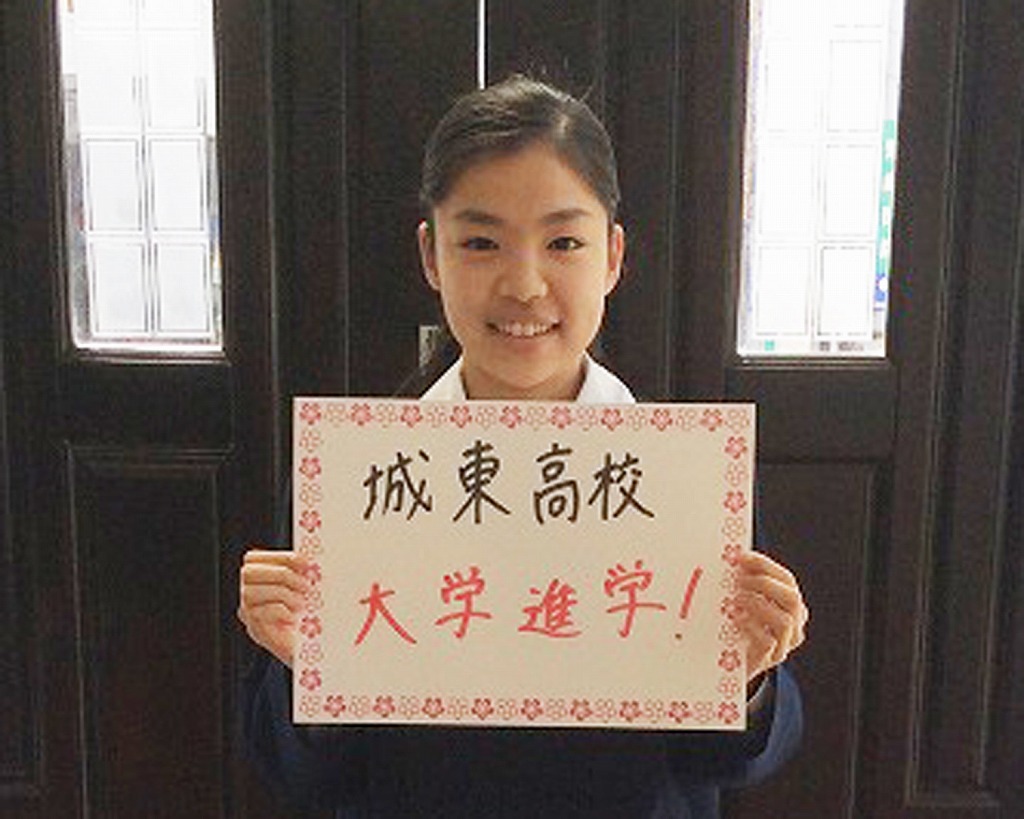 城東高校
大学進学!